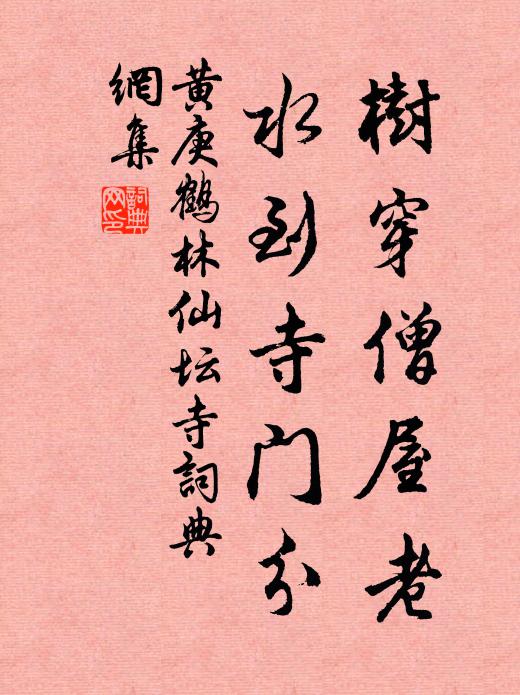 樹穿僧屋老
水到寺门分
黄庚鶴林仙坛寺詞典
網集
詞典
网印